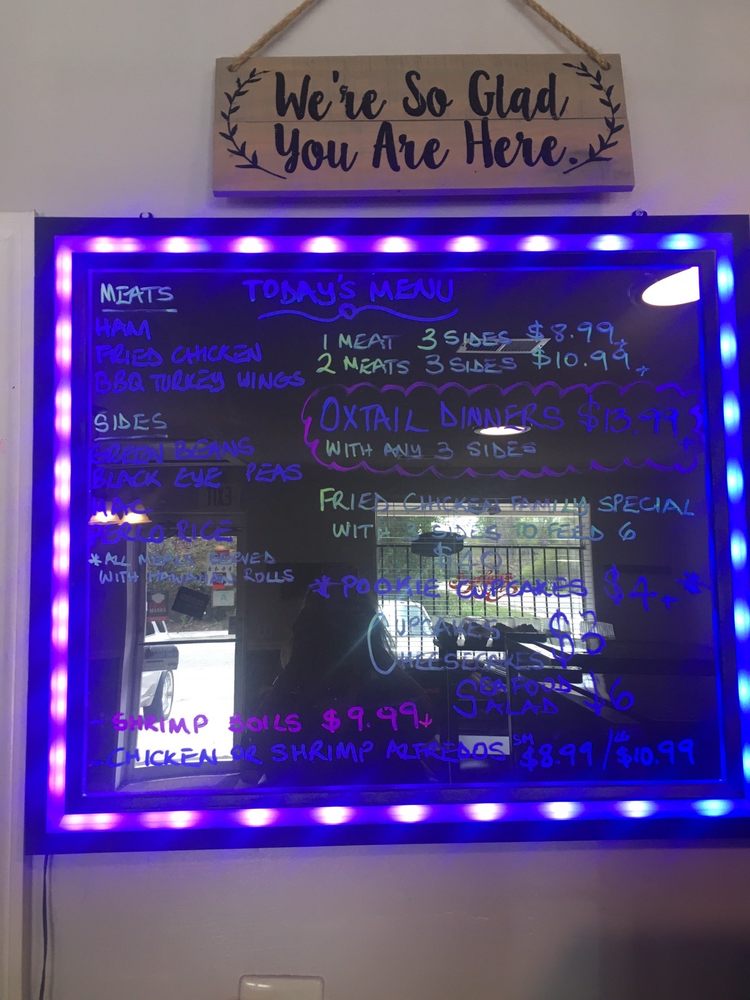 We're So Glad
You Are Here.
TODAY'S MENU
MEATS
HAM
FRIED CHICKEN
BBQ TURKEY WINGS
SIDES
GREEN BEANS
BLACK EYE PEAS
RICE
*ALL MEALS SERVED
WITH HAWAIIAN ROLLS
1 MEAT 3 SIDES $8.99+
2 MEATS 3 SIDES $10.99+
OXTAIL DINNERS $13.99
WITH ANY 3 SIDES
FRIED CHICKEN FAMILY SPECIAL
WITH SIDES TO FEED 6
*POOKIE CUPCAKES $4+*
CUPCAKES $3
CHEESECAKES
SEAFOOD
SALAD $6
SHRIMP BOILS $9.99
CHICKEN OR SHRIMP ALFREDOS SM $8.99 / LG $10.99